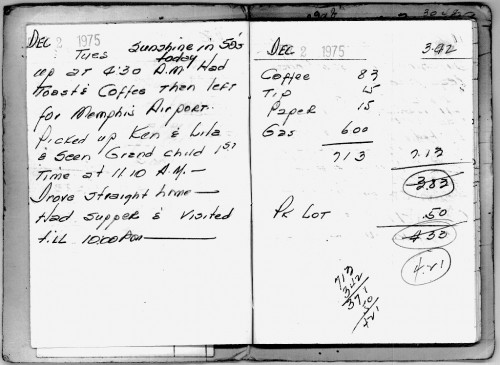 DEC 2 1975
Tues Sunshine in 50s
today
up at 4:30 A.M Had
Toast & Coffee then left
for Memphis Airport.
Picked up Ken & Lila
& Seen Grand child 1st
Time at 11.10 A.M.—
Drove straight home —
Had Supper & Visited
till 10:00 P.M
DEC 2 1975 3.42
Coffee 83
Tip 15
Paper 15
Gas 600
713 7.13
3.83
Pk Lot .50
4.33
4.21
713
342
371
50
421